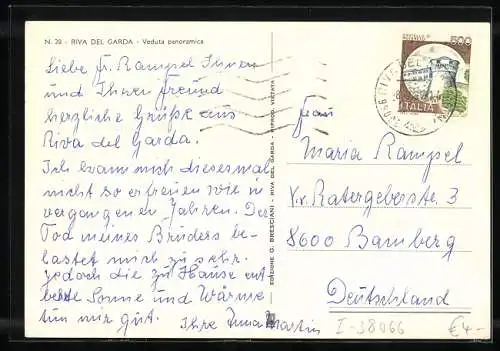 N. 28 - RIVA DEL GARDA - Veduta panoramica
Liebe Fr. Rampel Ihnen
und Ihrer Freund
herzliche Grüße aus
Riva del Garda.
Ich kann mich diesesmal
nicht so erfreuen wie in
vergangenen Jahren. Der
Tod meines Bruders be-
lastet mich zu sehr.
jedoch die zu Hause ent
behrte Sonne und Wärme
tun mir gut.
Ihre Martin
EDIZIONE G. BRESCIANI - RIVA DEL GARDA - RIPROD. VIETATA
500
ITALIA
Frau
Maria Rampel
8600 Bamberg
Deutschland
I-38066
€4-